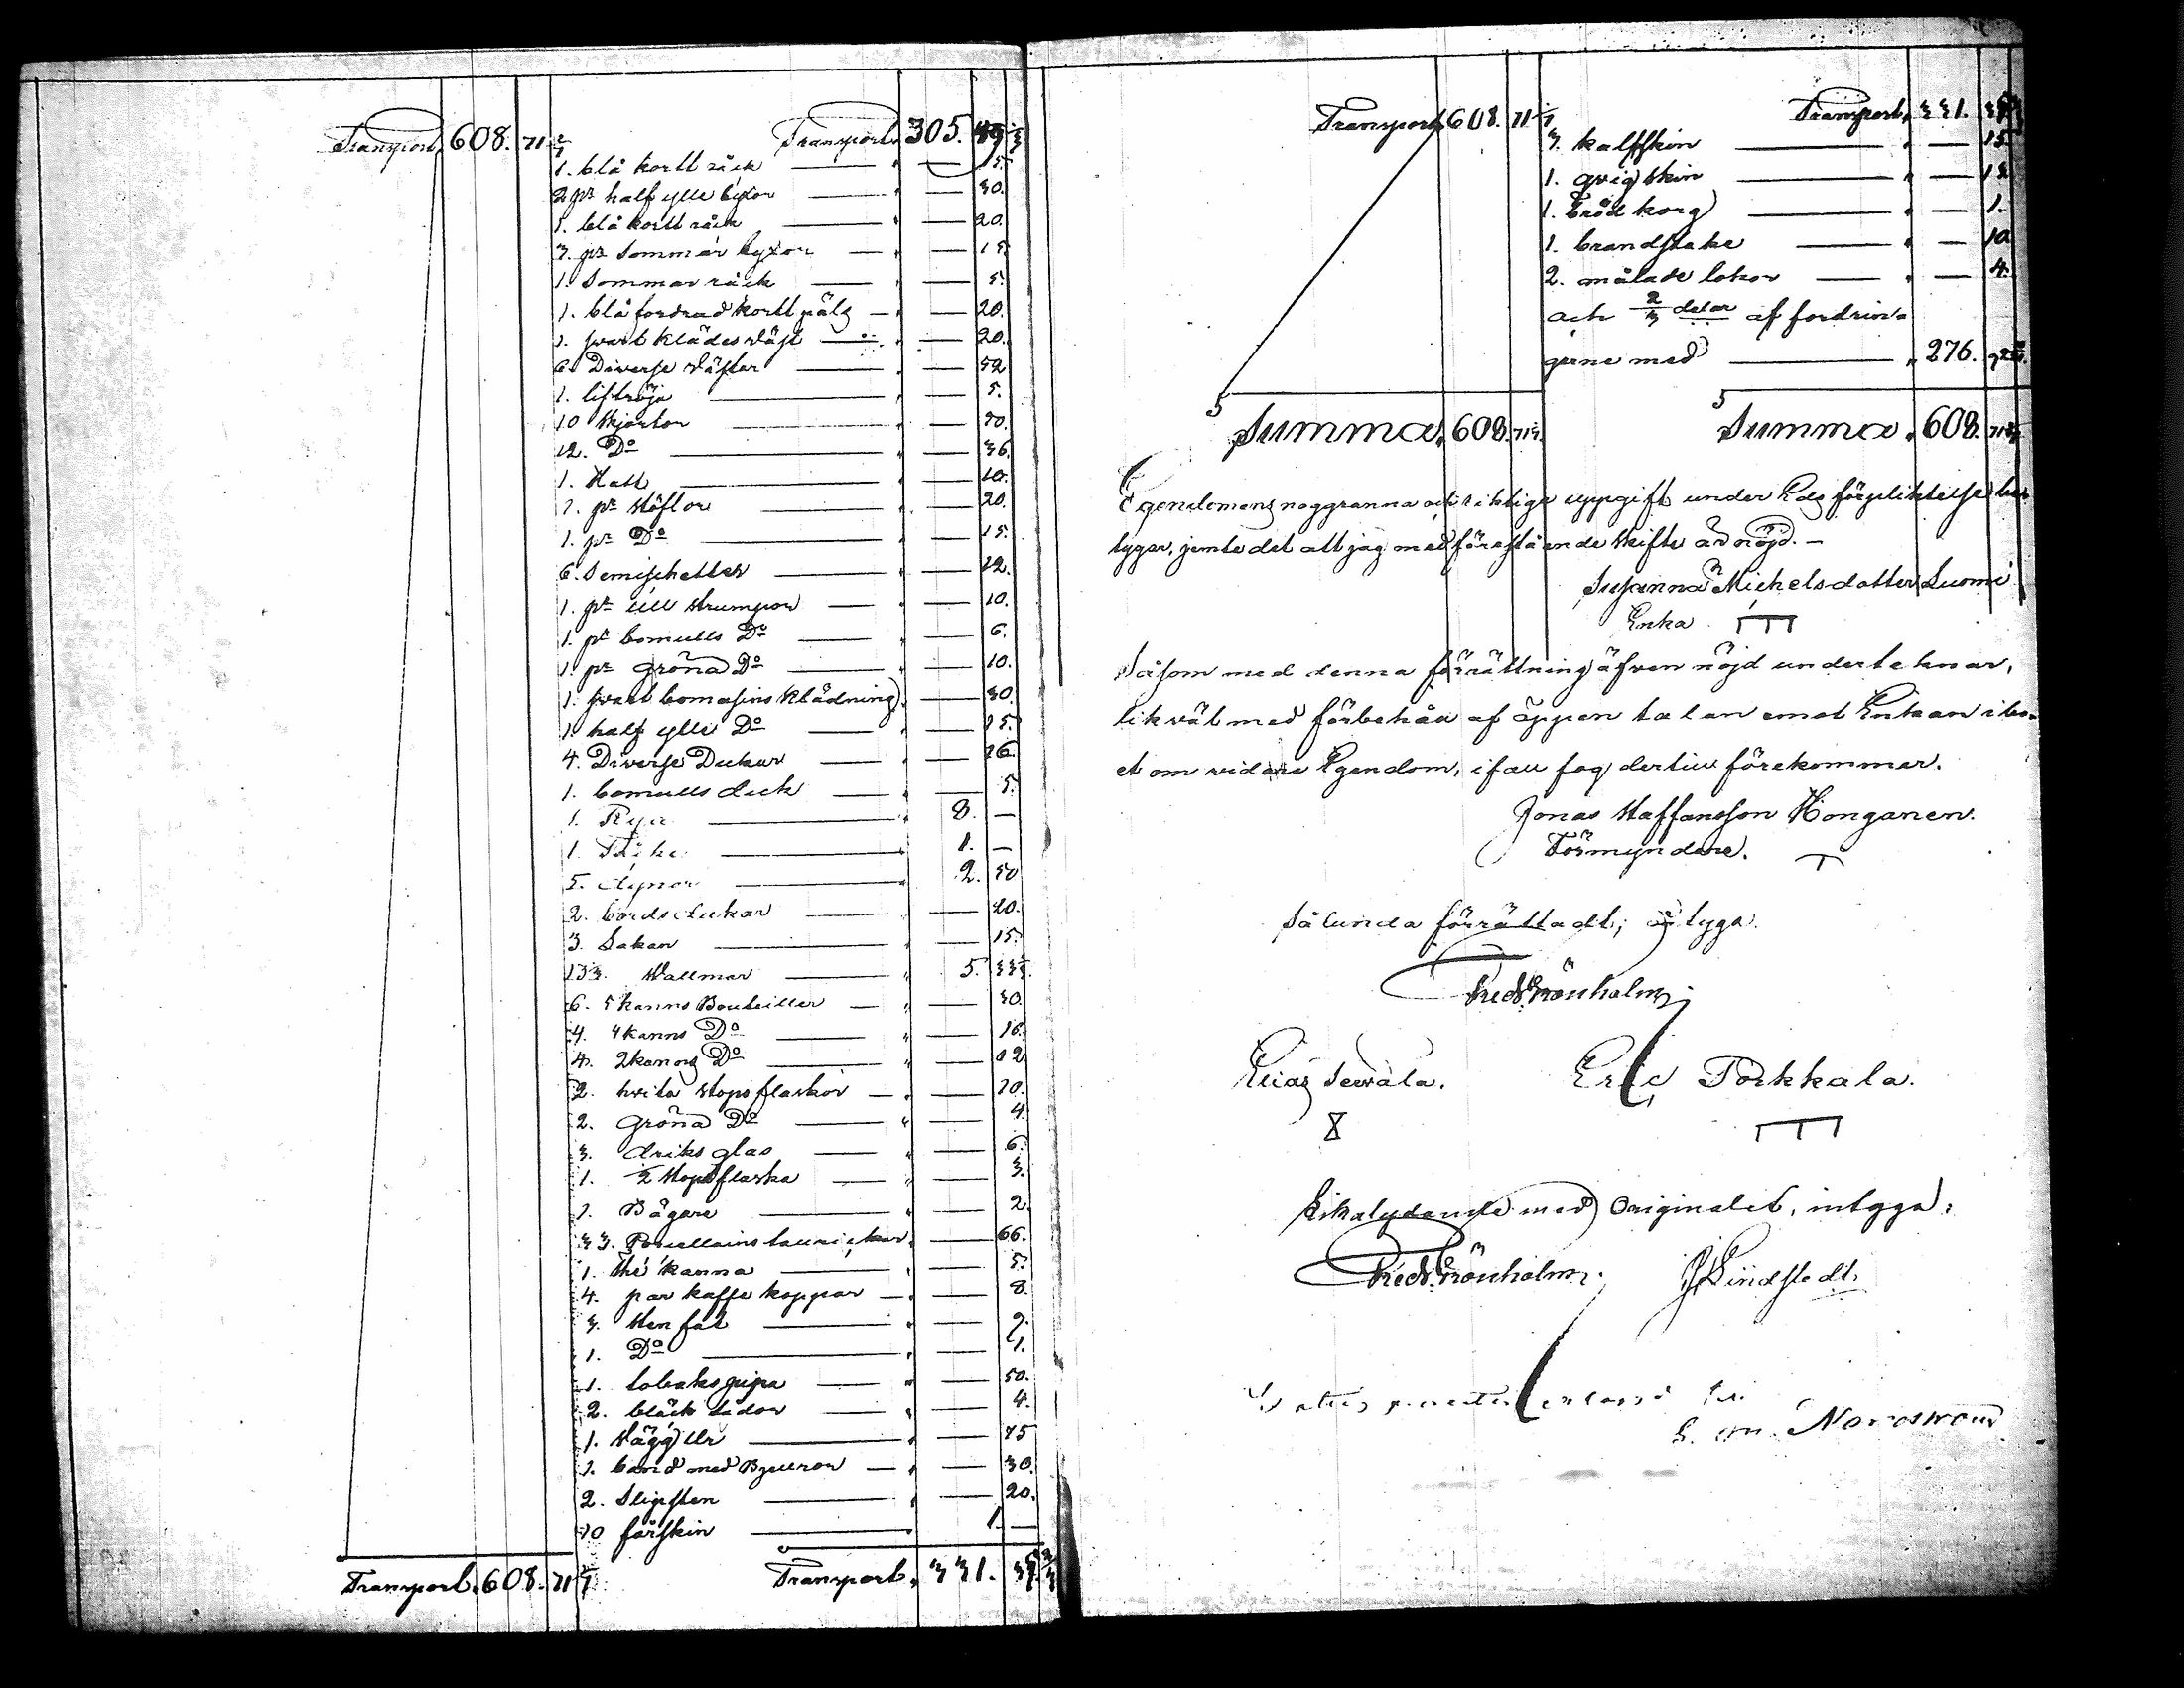 Transport. 608. 71 Transport. 305.
1. blå kortt råck — 15.
2 pr half ylle byxor — 30.
1. blå kortt råck — 20.
3. pr Sommar byxor — 15.
1 Sommar råck — 5.
1. blå fordrad kortt päls — 20.
1. svart klädes väst — 20.
6. Diverse väster — 52
1. liftröja — 5.
10 skjortor — 50.
12. Do — 36.
1. Hatt — 10.
1. pr stöflor — 20.
1. pr Do — 15.
6. Semischetter — 12.
1. pr ull strumpor — 10.
1. pr bomulls Do — 6.
1. pr gröna Do — 10.
1. svart bomasins klädning — 30.
1 half ylle Do — 15.
4. Diverse Dukar — 16.
1. bomulls duk — 5.
1. Rya — 8. —
1. — 1. —
5. dynor — 2. 50
2. bords dukar — 20.
3. Lakan — 15.
Wallmar — 5. 33
6. 5 kanns Bouteiller — 30.
4. 4 kanns Do — 16.
4. 2 kanns Do — 12
2. hvita stops flaskor — 10.
2. gröna Do — 4.
3. driks glas — 6.
1. ½ stops flaska — 3.
1. Bägare — 2.
33. Porcellains taurickar — 66.
1. thé kanna — 5.
4. par kaffe koppar — 8.
3. sten fat — 9.
1. Do — 1.
1. tobaks pipa — 50.
2. bläck lådor — 4.
1. vägg Ur — 75
1. band med Bjellror — 30.
2. Slipsten — 20.
10 fårskin — 1. —
Transport. 608. 71 Transport. 331.
Transport. 608. 71 Transport. 331.
3. kalfskin — 15
1. qvig skin — 12
1. bröd korg — 1.
1. brandstake — 10
2. målade lokor — 4.
och 2/3 delar af fordrin-
garne med — 276.
Summa. 608. 71 Summa. 608. 71
Egendomens noggranna och riktiga uppgift under Eds förpliktelse be-
tygar, jemte det att jag med föreståënde skifte är nöjd. —
Susanna Michelsdotter Luomi
Enka
Såsom med denna förrättning äfven nöjd undertecknar,
likväl med förbehåll af öppen talan emot Enkan i bo-
et om vidare Egendom, ifall fog dertill förekommer.
Jonas Staffansson Honganen.
Förmyndare.
Sålunda förrättadt; betyga.
Fredr. Grönholm
Elias Sewäla. Eric Torkkala.
Likalydande med Originalet, intyga:
Fredr. Grönholm. J Lindstedt.
Nordström